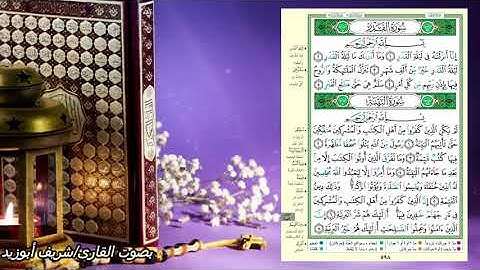 سُورَةُ القَدْرِ
بِسْمِ اللَّهِ الرَّحْمَٰنِ الرَّحِيمِ
إِنَّا أَنزَلْنَاهُ فِي لَيْلَةِ الْقَدْرِ ١ وَمَا أَدْرَاكَ مَا لَيْلَةُ الْقَدْرِ ٢
لَيْلَةُ الْقَدْرِ خَيْرٌ مِّنْ أَلْفِ شَهْرٍ ٣ تَنَزَّلُ الْمَلَائِكَةُ وَالرُّوحُ
فِيهَا بِإِذْنِ رَبِّهِم مِّن كُلِّ أَمْرٍ ٤ سَلَامٌ هِيَ حَتَّىٰ مَطْلَعِ الْفَجْرِ ٥
سُورَةُ البَيِّنَةِ
بِسْمِ اللَّهِ الرَّحْمَٰنِ الرَّحِيمِ
لَمْ يَكُنِ الَّذِينَ كَفَرُوا مِنْ أَهْلِ الْكِتَابِ وَالْمُشْرِكِينَ مُنفَكِّينَ
حَتَّىٰ تَأْتِيَهُمُ الْبَيِّنَةُ ١ رَسُولٌ مِّنَ اللَّهِ يَتْلُو صُحُفًا مُّطَهَّرَةً ٢
فِيهَا كُتُبٌ قَيِّمَةٌ ٣ وَمَا تَفَرَّقَ الَّذِينَ أُوتُوا الْكِتَابَ إِلَّا مِن بَعْدِ
مَا جَاءَتْهُمُ الْبَيِّنَةُ ٤ وَمَا أُمِرُوا إِلَّا لِيَعْبُدُوا اللَّهَ مُخْلِصِينَ
لَهُ الدِّينَ حُنَفَاءَ وَيُقِيمُوا الصَّلَاةَ وَيُؤْتُوا الزَّكَاةَ
وَذَٰلِكَ دِينُ الْقَيِّمَةِ ٥ إِنَّ الَّذِينَ كَفَرُوا مِنْ أَهْلِ الْكِتَابِ وَالْمُشْرِكِينَ
فِي نَارِ جَهَنَّمَ خَالِدِينَ فِيهَا أُولَٰئِكَ هُمْ شَرُّ الْبَرِيَّةِ ٦ إِنَّ
الَّذِينَ آمَنُوا وَعَمِلُوا الصَّالِحَاتِ أُولَٰئِكَ هُمْ خَيْرُ الْبَرِيَّةِ ٧
٥٩٨
بصوت القارئ/شريف أبوزيد